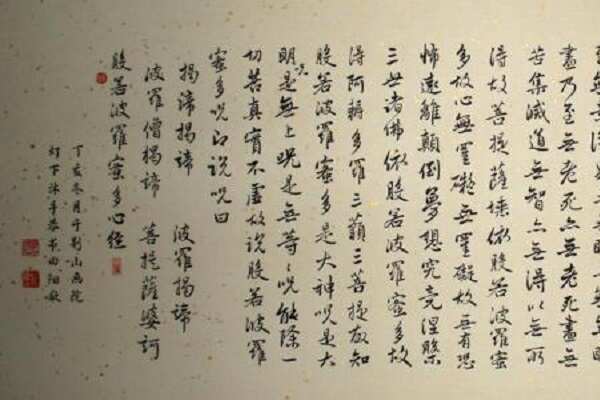 盡乃至無老死亦無老死盡無
苦集滅道無智亦無得以無所
得故菩提薩埵依般若波羅蜜
多故心無罣礙無罣礙故無有恐
怖遠離顛倒夢想究竟涅槃
三世諸佛依般若波羅蜜多故
得阿耨多羅三藐三菩提故知
般若波羅蜜多是大神咒是大
明咒是無上咒是無等々咒能除一
切苦真實不虛故說般若波羅
蜜多咒即說咒曰
揭諦揭諦 波羅揭諦
波羅僧揭諦 菩提薩婆訶
般若波羅蜜多心經
丁亥冬月于荊山畫院
灯下沐手恭書